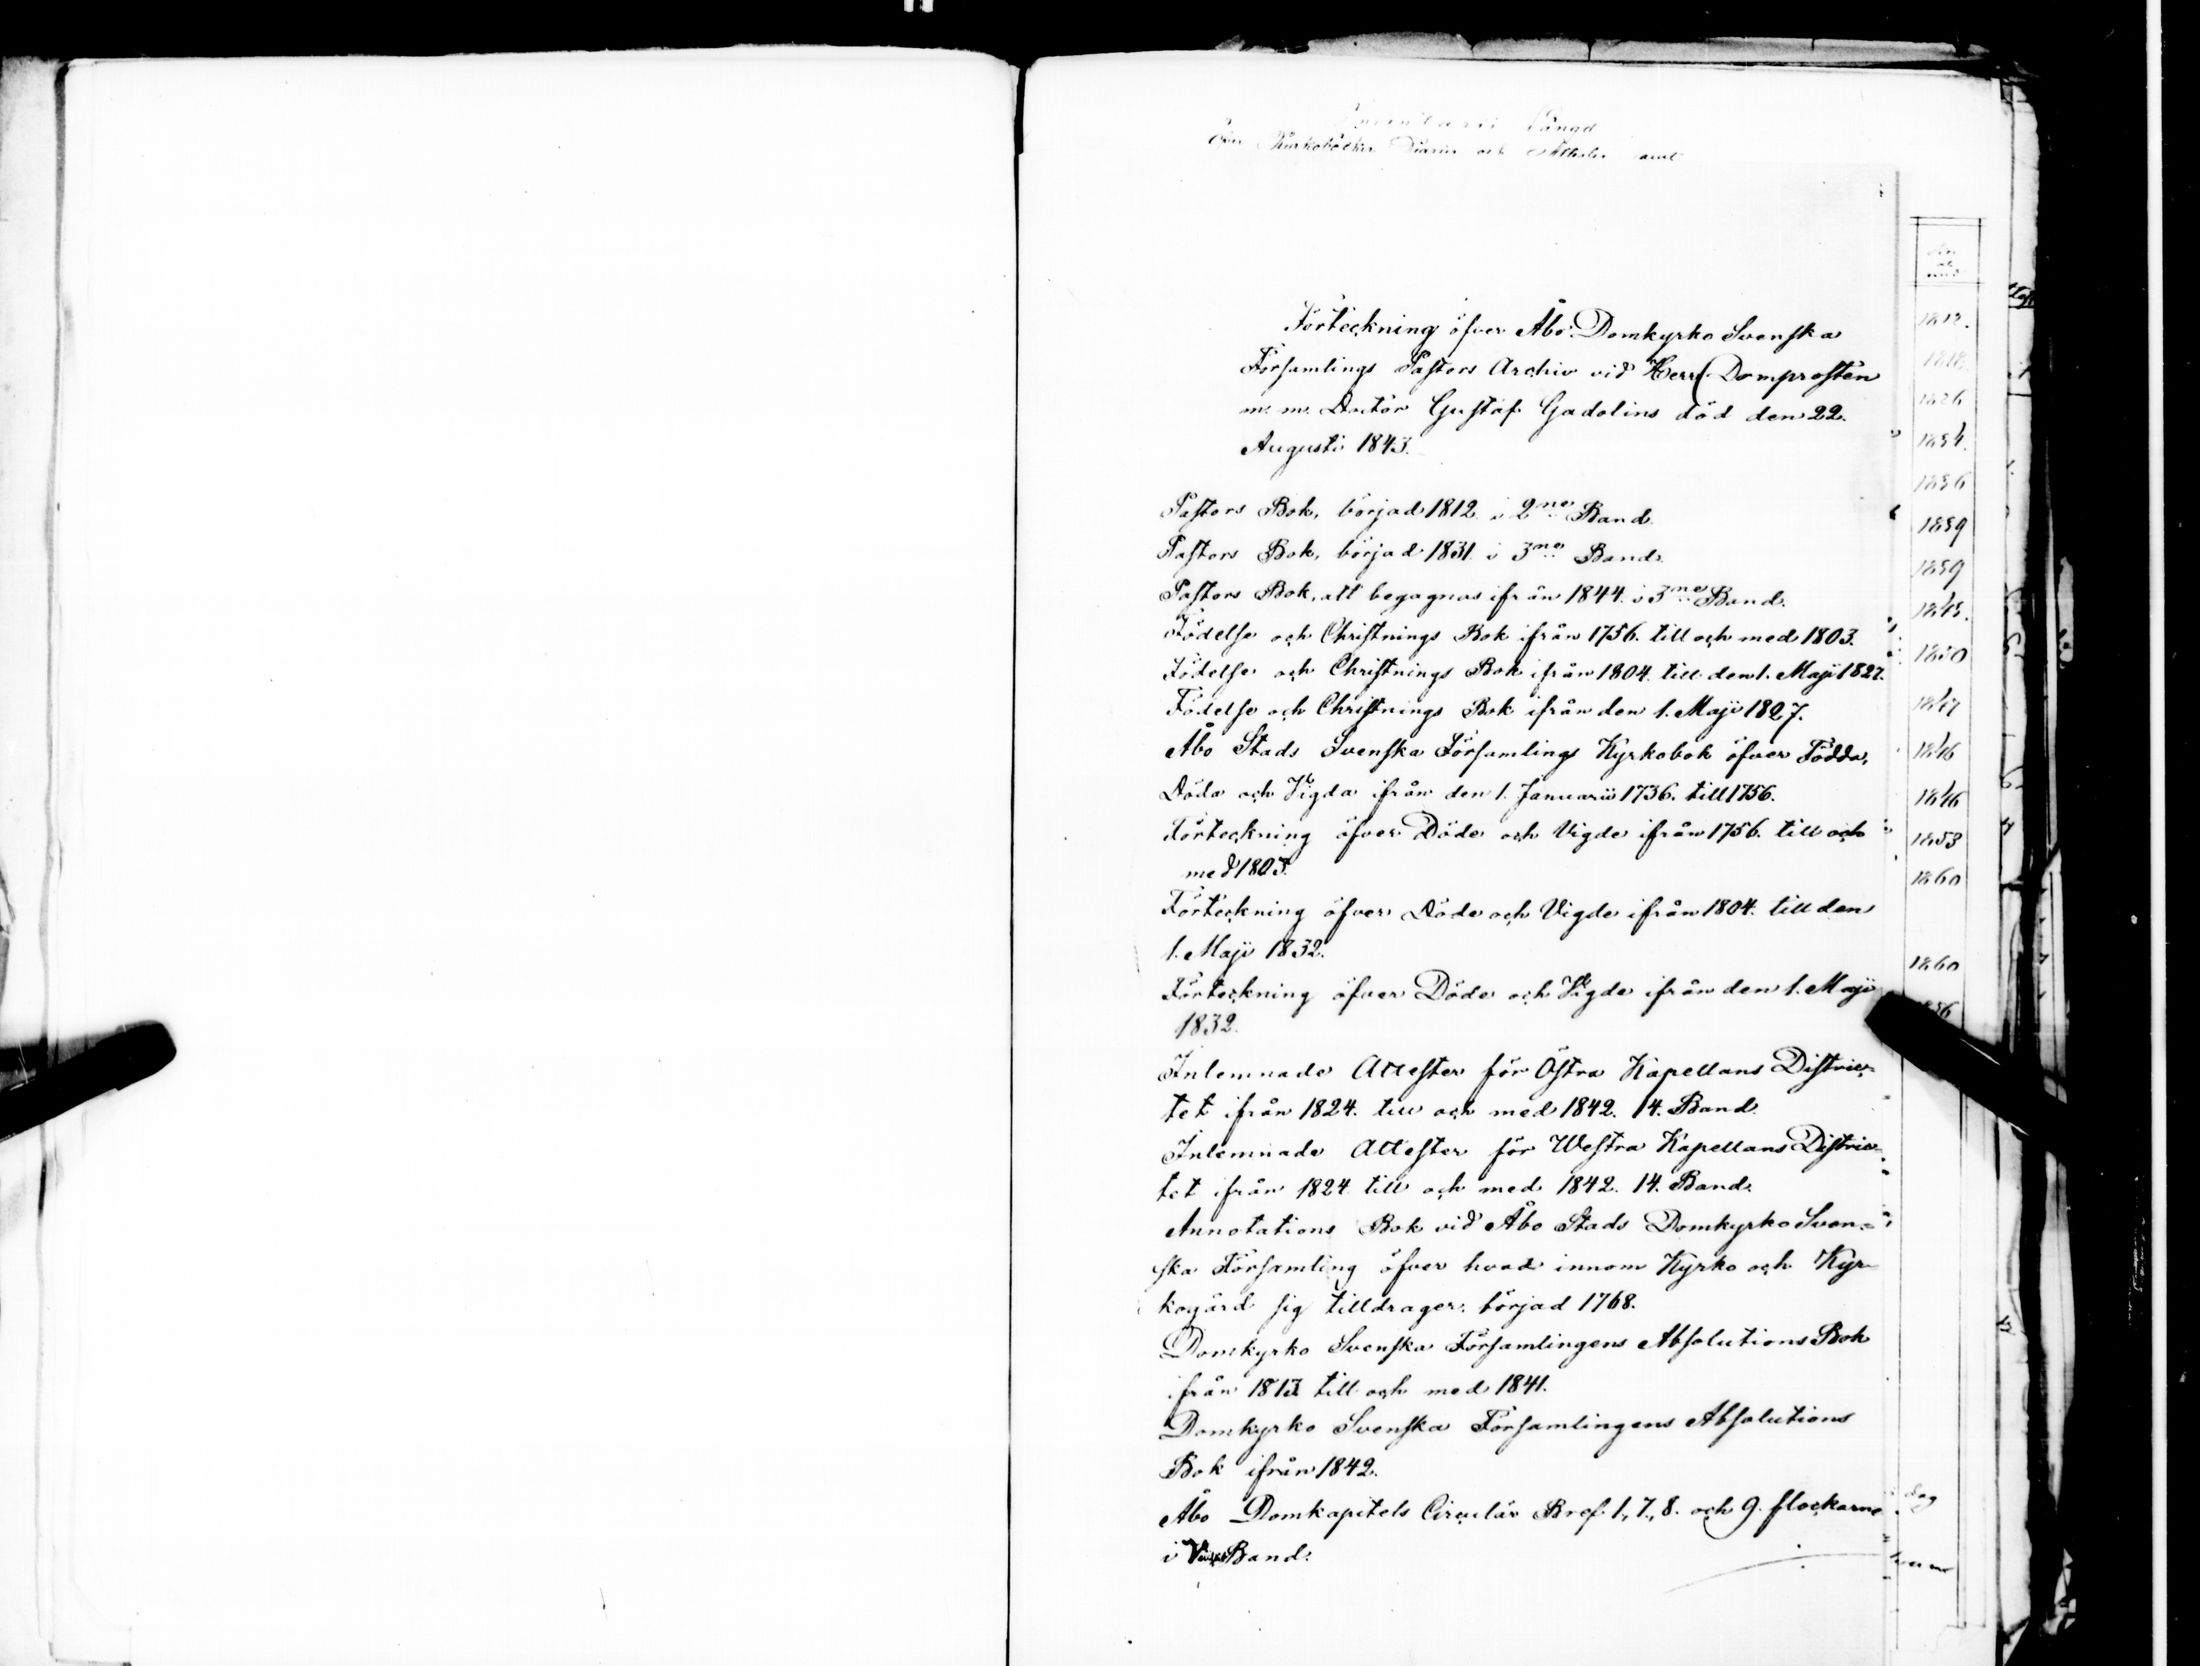 Inventarii Längd
öfver Kyrkoböcker Diarier och Attester samt
Förteckning öfver Åbo Domkyrko Svenska
Församlings Pastors Archiv vid Herr Domprosten
m. m. Doctor Gustaf Gadolins död den 22.
Augusti 1843.
Pastors Bok, börjad 1812. i 2ne Band.
Pastors Bok, börjad 1831. i 3ne Band.
Pastors Bok, att begagnas ifrån 1844. i 3ne Band.
Födelse och Christnings Bok ifrån 1756. till och med 1803.
Födelse och Christnings Bok ifrån 1804. till den 1. Maji 1827.
Födelse och Christnings Bok ifrån den 1. Maji 1827.
Åbo Stads Svenska Församlings Kyrkobok öfver Födda,
Döda och Vigda ifrån den 1. Januarii 1736. till 1756.
Förteckning öfver Döde och Vigde ifrån 1756. till och
med 1803.
Förteckning öfver Döde och Vigde ifrån 1804. till den
1. Maji 1832.
Förteckning öfver Döde och Vigde ifrån den 1. Maji
1832.
Inlemnade Attester för Östra Kapellans Distric=
tet ifrån 1824. till och med 1842. 14. Band.
Inlemnade Attester för Westra Kapellans Distric=
tet ifrån 1824 till och med 1842. 14. Band.
Annotations Bok vid Åbo Stads Domkyrko Sven=
ska Församling öfver hvad innom Kyrko och Kyr=
kogård sig tilldrager. börjad 1768.
Domkyrko Svenska Församlingens Absolutions Bok
ifrån 1813 till och med 1841.
Domkyrko Svenska Församlingens Absolutions
Bok ifrån 1842.
Åbo Domkapitels Circulär Bref 1., 7., 8. och 9. flockarne
i Band.
1812.
1818.
1826
1834.
1836
1839
1839
1843.
1850
1847
1846
1846
1853
1860
1860